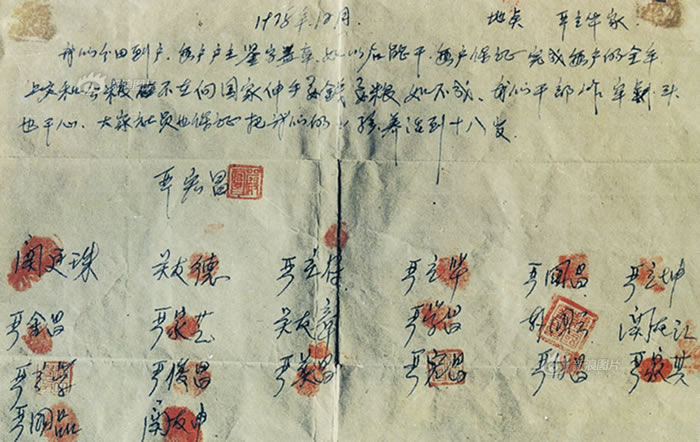 1978年12月. 地点 严立华家.
我们分田到户. 每户户主签字盖章. 如以后能干. 每户保证完成每户的全年
上交和公粮. 不在向国家伸手要钱要粮 如不成. 我们干部作牢刹头
也干心. 大家社员也保证把我们的小孩养活到十八岁.
严宏昌
关廷珠 关友德 严立符 严立华 严国昌 严立坤
严金昌 严家芝 关友章 严学昌 韩国云 关友江
严立学 严俊昌 严美昌 严宏昌 严付昌 严家其
严国品 关友申
新浪图片